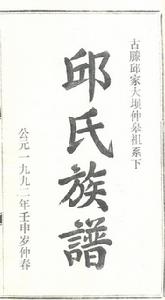 古滕邱家大坝仲皋祖系下
邱氏族譜
公元一九九二年壬申岁仲春